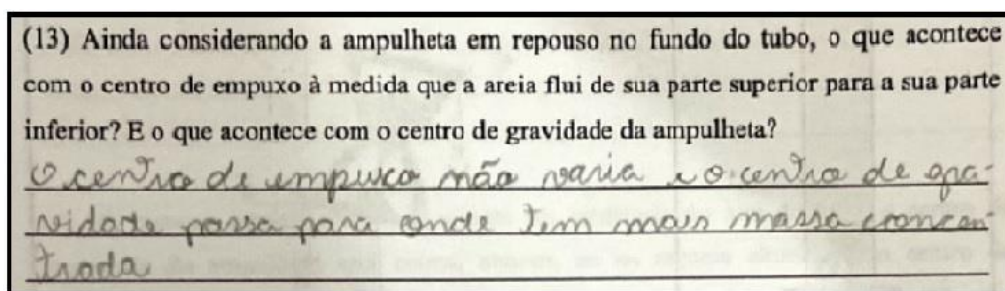 (13) Ainda considerando a ampulheta em repouso no fundo do tubo, o que acontece
com o centro de empuxo à medida que a areia flui de sua parte superior para a sua parte
inferior? E o que acontece com o centro de gravidade da ampulheta?
O centro de empuxo não varia e o centro de gra-
vidade passa para onde tem mais massa concen-
trada